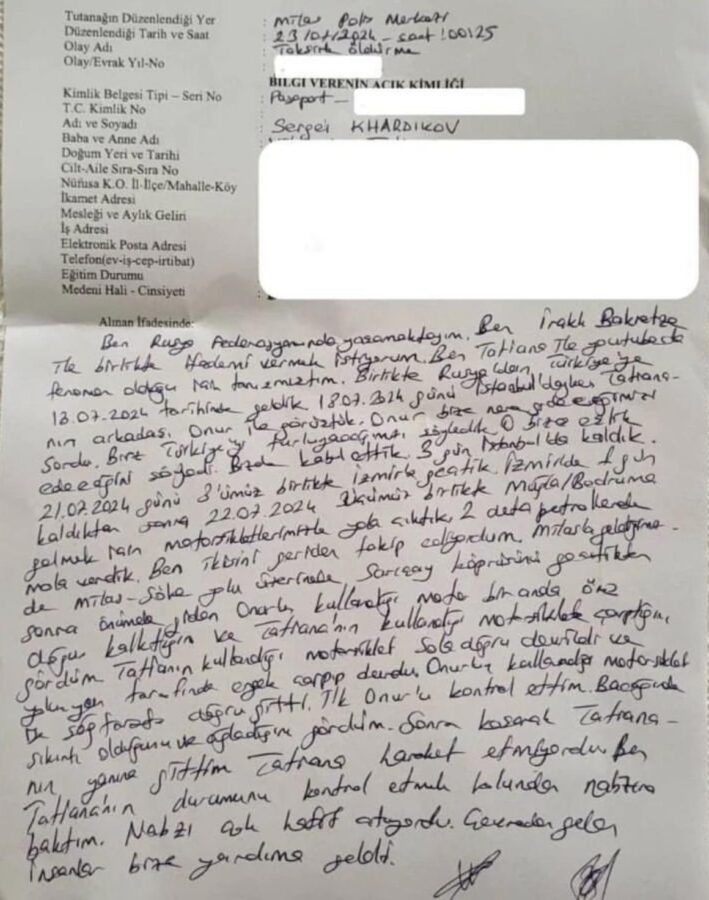 Tutanağın Düzenlendiği Yer : Milas Polis Merkezi
Düzenlendiği Tarih ve Saat : 23/07/2024 - saat: 00:25
Olay Adı : Taksirle öldürme
Olay/Evrak Yıl-No :
BİLGİ VERENİN AÇIK KİMLİĞİ
Kimlik Belgesi Tipi – Seri No : Pasaport –
T.C. Kimlik No :
Adı ve Soyadı : Sergei KHARDIKOV
Baba ve Anne Adı
Doğum Yeri ve Tarihi
Cilt-Aile Sıra-Sıra No
Nüfusa K.O. İl-İlçe/Mahalle-Köy
İkamet Adresi
Mesleği ve Aylık Geliri
İş Adresi
Elektronik Posta Adresi
Telefon(ev-iş-cep-irtibat)
Eğitim Durumu
Medeni Hali - Cinsiyeti
Alınan İfadesinde:
Ben Rusya Federasyonunda yaşamaktayım. Ben Irakli Bakratze
ile birlikte ifademi vermek istiyorum. Ben Tatiana ile youtubede
fenomen olduğu için tanışmıştım. Birlikte Rusya'dan, Türkiye'ye
13.07.2024 tarihinde geldik 18.07.2024 günü İstanbul'dayken Tatiana-
nın arkadaşı Onur ile görüştük. Onur bize nereye gideceğimizi
sordu. Biz Türkiye'yi turlayacağımızı söyledik O bize eşlik
edeceğini söyledi. Bizde kabul ettik. 3 gün İstanbul'da kaldık.
21.07.2024 günü 3'ümüz birlikte İzmir'e geçtik. İzmirde 1 gün
kaldıktan sonra 22.07.2024 üçümüz birlikte Muğla/Bodruma
gelmek için motorsikletlerimizle yola çıktık. 2 defa petrollerde
mola verdik. Ben ikisini geriden takip ediyordum. Milas'a geldiğimiz-
de Milas-Söke yolu üzerinde, Sarıçay köprüsünü geçtikten
sonra önümde giden Onur'un kullandığı motor bir anda öne
doğru kalktığını ve Tatiana'nın kullandığı motorsiklete çarptığını
gördüm Tatianın kullandığı motorsiklet sola doğru devrildi ve
yolun yan tarafında çarpıp durdu. Onur'un kullandığı motorsiklet
de sağ tarafa doğru gitti. İlk Onur'u kontrol ettim. Bacağında
sıkıntı olduğunu ve ağladığını gördüm. Sonra koşarak Tatiana-
nın yanına gittim Tatiana hareket etmiyordu. Ben
Tatiana'nın durumunu kontrol etmek kolundan nabzına
baktım. Nabzı çok hafif atıyordu. Çevreden gelen
insanlar bize yardıma geldi.